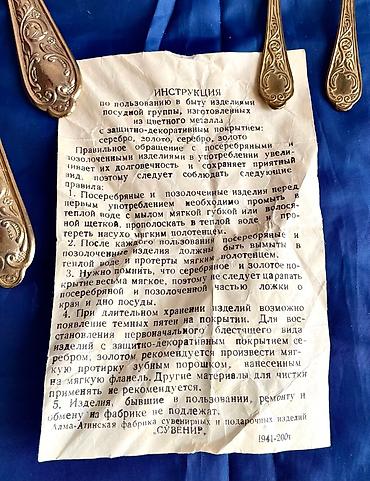 ИНСТРУКЦИЯ
по пользованию в быту изделиями
посудной группы, изготовленных
из цветного металла
с защитно-декоративным покрытием:
серебро, золото, серебро, золото
Правильное обращение с посеребряными и
позолоченными изделиями в употреблении увели-
чивает их долговечность и сохраняет приятный
вид, поэтому следует соблюдать следующие
правила:
1. Посеребряные и позолоченные изделия перед
первым употреблением необходимо промыть в
теплой воде с мылом мягкой губкой или волося-
ной щеткой, прополоскать в теплой воде и про-
тереть насухо мягким полотенцем.
2. После каждого пользования посеребряные и
позолоченные изделия должны быть вымыты в
теплой воде и протерты мягким полотенцем.
3. Нужно помнить, что серебряное и золотое по-
крытие весьма мягкое, поэтому не следует царапать
посеребряной и позолоченной частью ложки о
края и дно посуды.
4. При длительном хранении изделий возможно
появление темных пятен на покрытии. Для вос-
становления первоначального блестящего вида
изделий с защитно-декоративным покрытием се-
ребром, золотом рекомендуется произвести мяг-
кую протирку зубным порошком, нанесенным
на мягкую фланель. Другие материалы для чистки
применять не рекомендуется.
5. Изделия, бывшие в пользовании, ремонту и
обмену на фабрике не подлежат.
Алма-Атинская фабрика сувенирных и подарочных изделий
„СУВЕНИР„
1941-200т